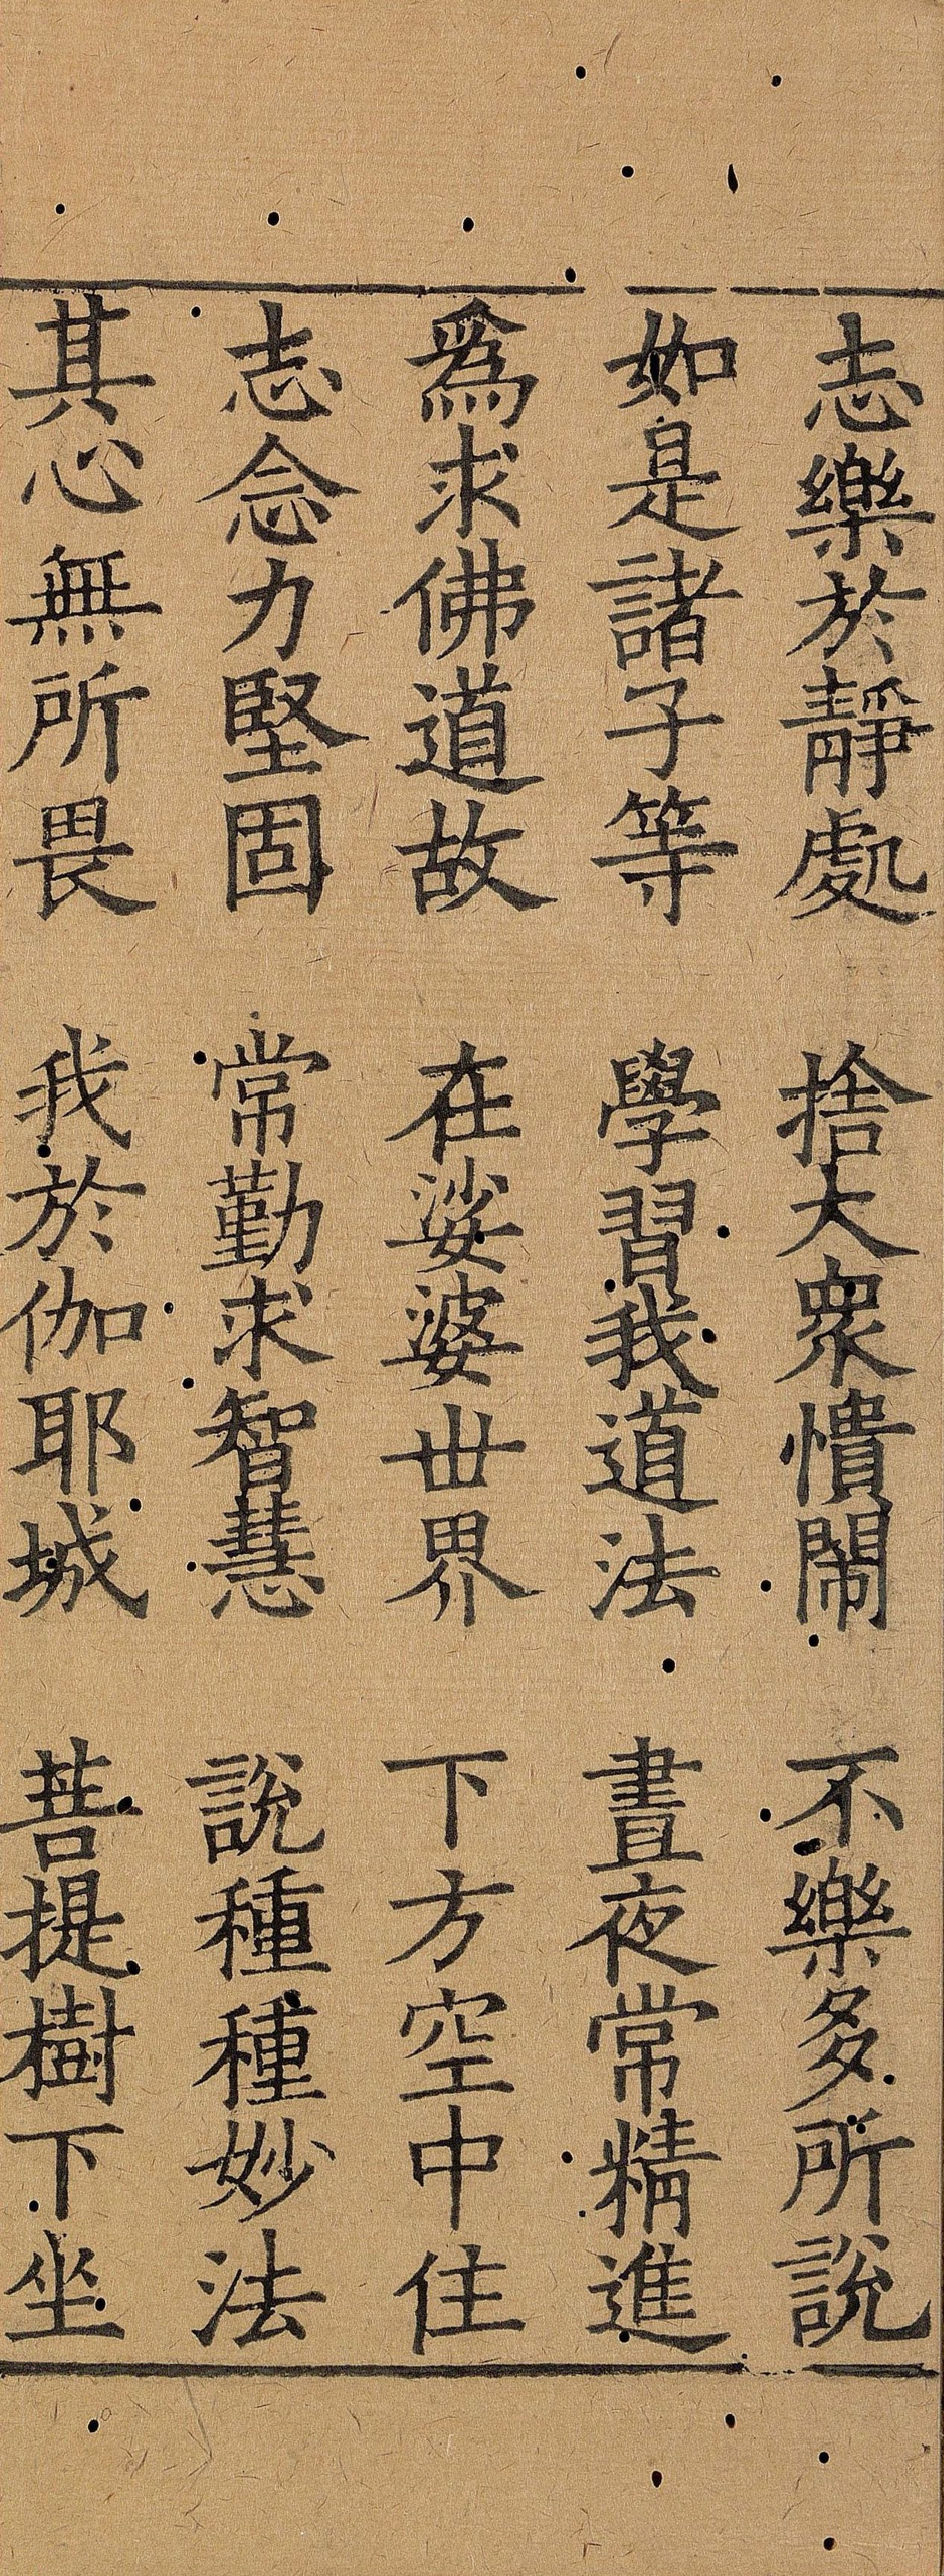 志樂於靜處　捨大衆憒閙　不樂多所說
如是諸子等　學習我道法　晝夜常精進
爲求佛道故　在娑婆世界　下方空中住
志念力堅固　常勤求智慧　說種種妙法
其心無所畏　我於伽耶城　菩提樹下坐